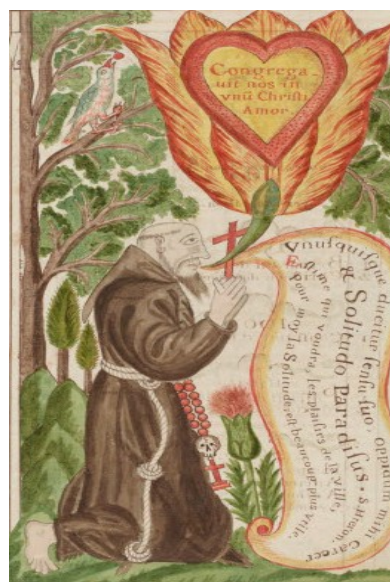 Congrega-
uit nos in
vnũ Christi
Amor.
Vnuſquiſque ducitur ſenſu ſuo, oppidum mihi Carcer
& Solitudo Paradiſus. S. Hieron.
Eſtime qui voudra, les plaiſirs de la ville,
Pour moy la Solitude, eſt beaucoup plus vtile.